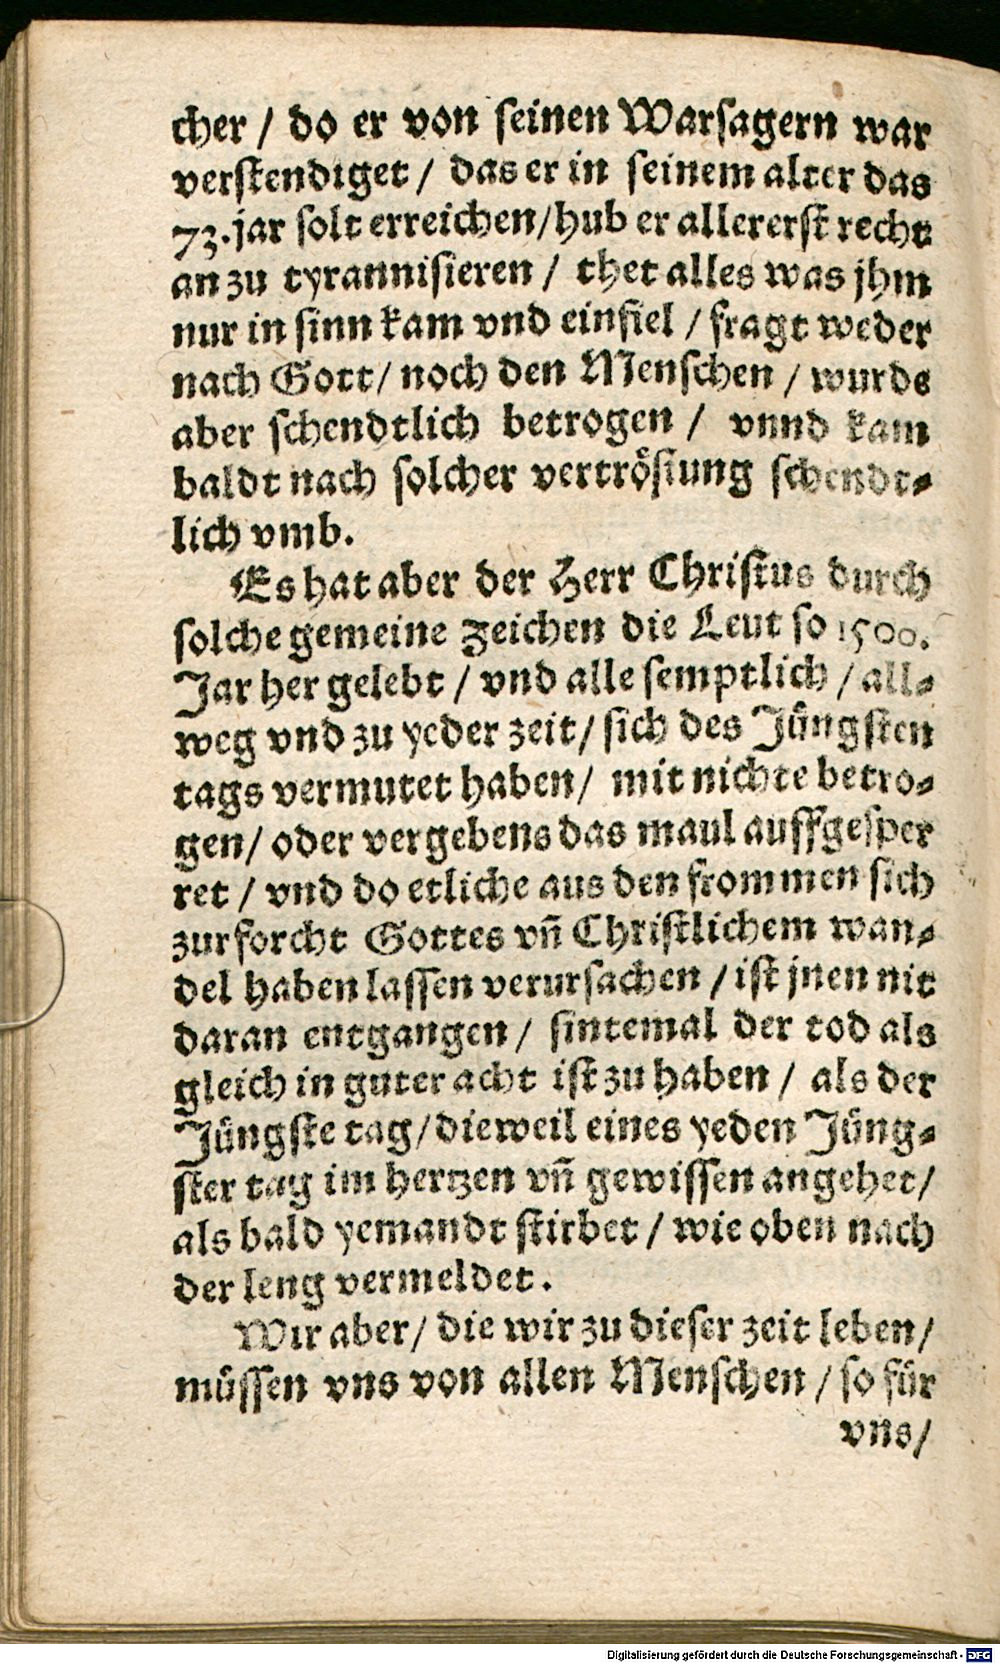 cher / do er von seinen Warsagern war
verstendiget / das er in seinem alter das
73. jar solt erreichen / hub er allererst recht
an zu tyrannisieren / thet alles was jhm
nur in sinn kam vnd einfiel / fragt weder
nach Gott / noch den Menschen / wurde
aber schendtlich betrogen / vnnd kam
baldt nach solcher vertröstung schendt⸗
lich vmb.
Es hat aber der Herr Christus durch
solche gemeine zeichen die Leut so 1500.
Jar her gelebt / vnd alle semptlich / all⸗
weg vnd zu yeder zeit / sich des Jüngsten
tags vermutet haben / mit nichte betro⸗
gen / oder vergebens das maul auffgesper
ret / vnd do etliche aus den frommen sich
zur forcht Gottes vñ Christlichem wan⸗
del haben lassen verursachen / ist jnen nit
daran entgangen / sintemal der tod als
gleich in guter acht ist zu haben / als der
Jüngste tag / dieweil eines yeden Jüng⸗
ster tag im hertzen vñ gewissen angehet /
als bald yemandt stirbet / wie oben nach
der leng vermeldet.
Wir aber / die wir zu dieser zeit leben /
müssen vns von allen Menschen / so für
vns /
Digitalisierung gefördert durch die Deutsche Forschungsgemeinschaft - DFG